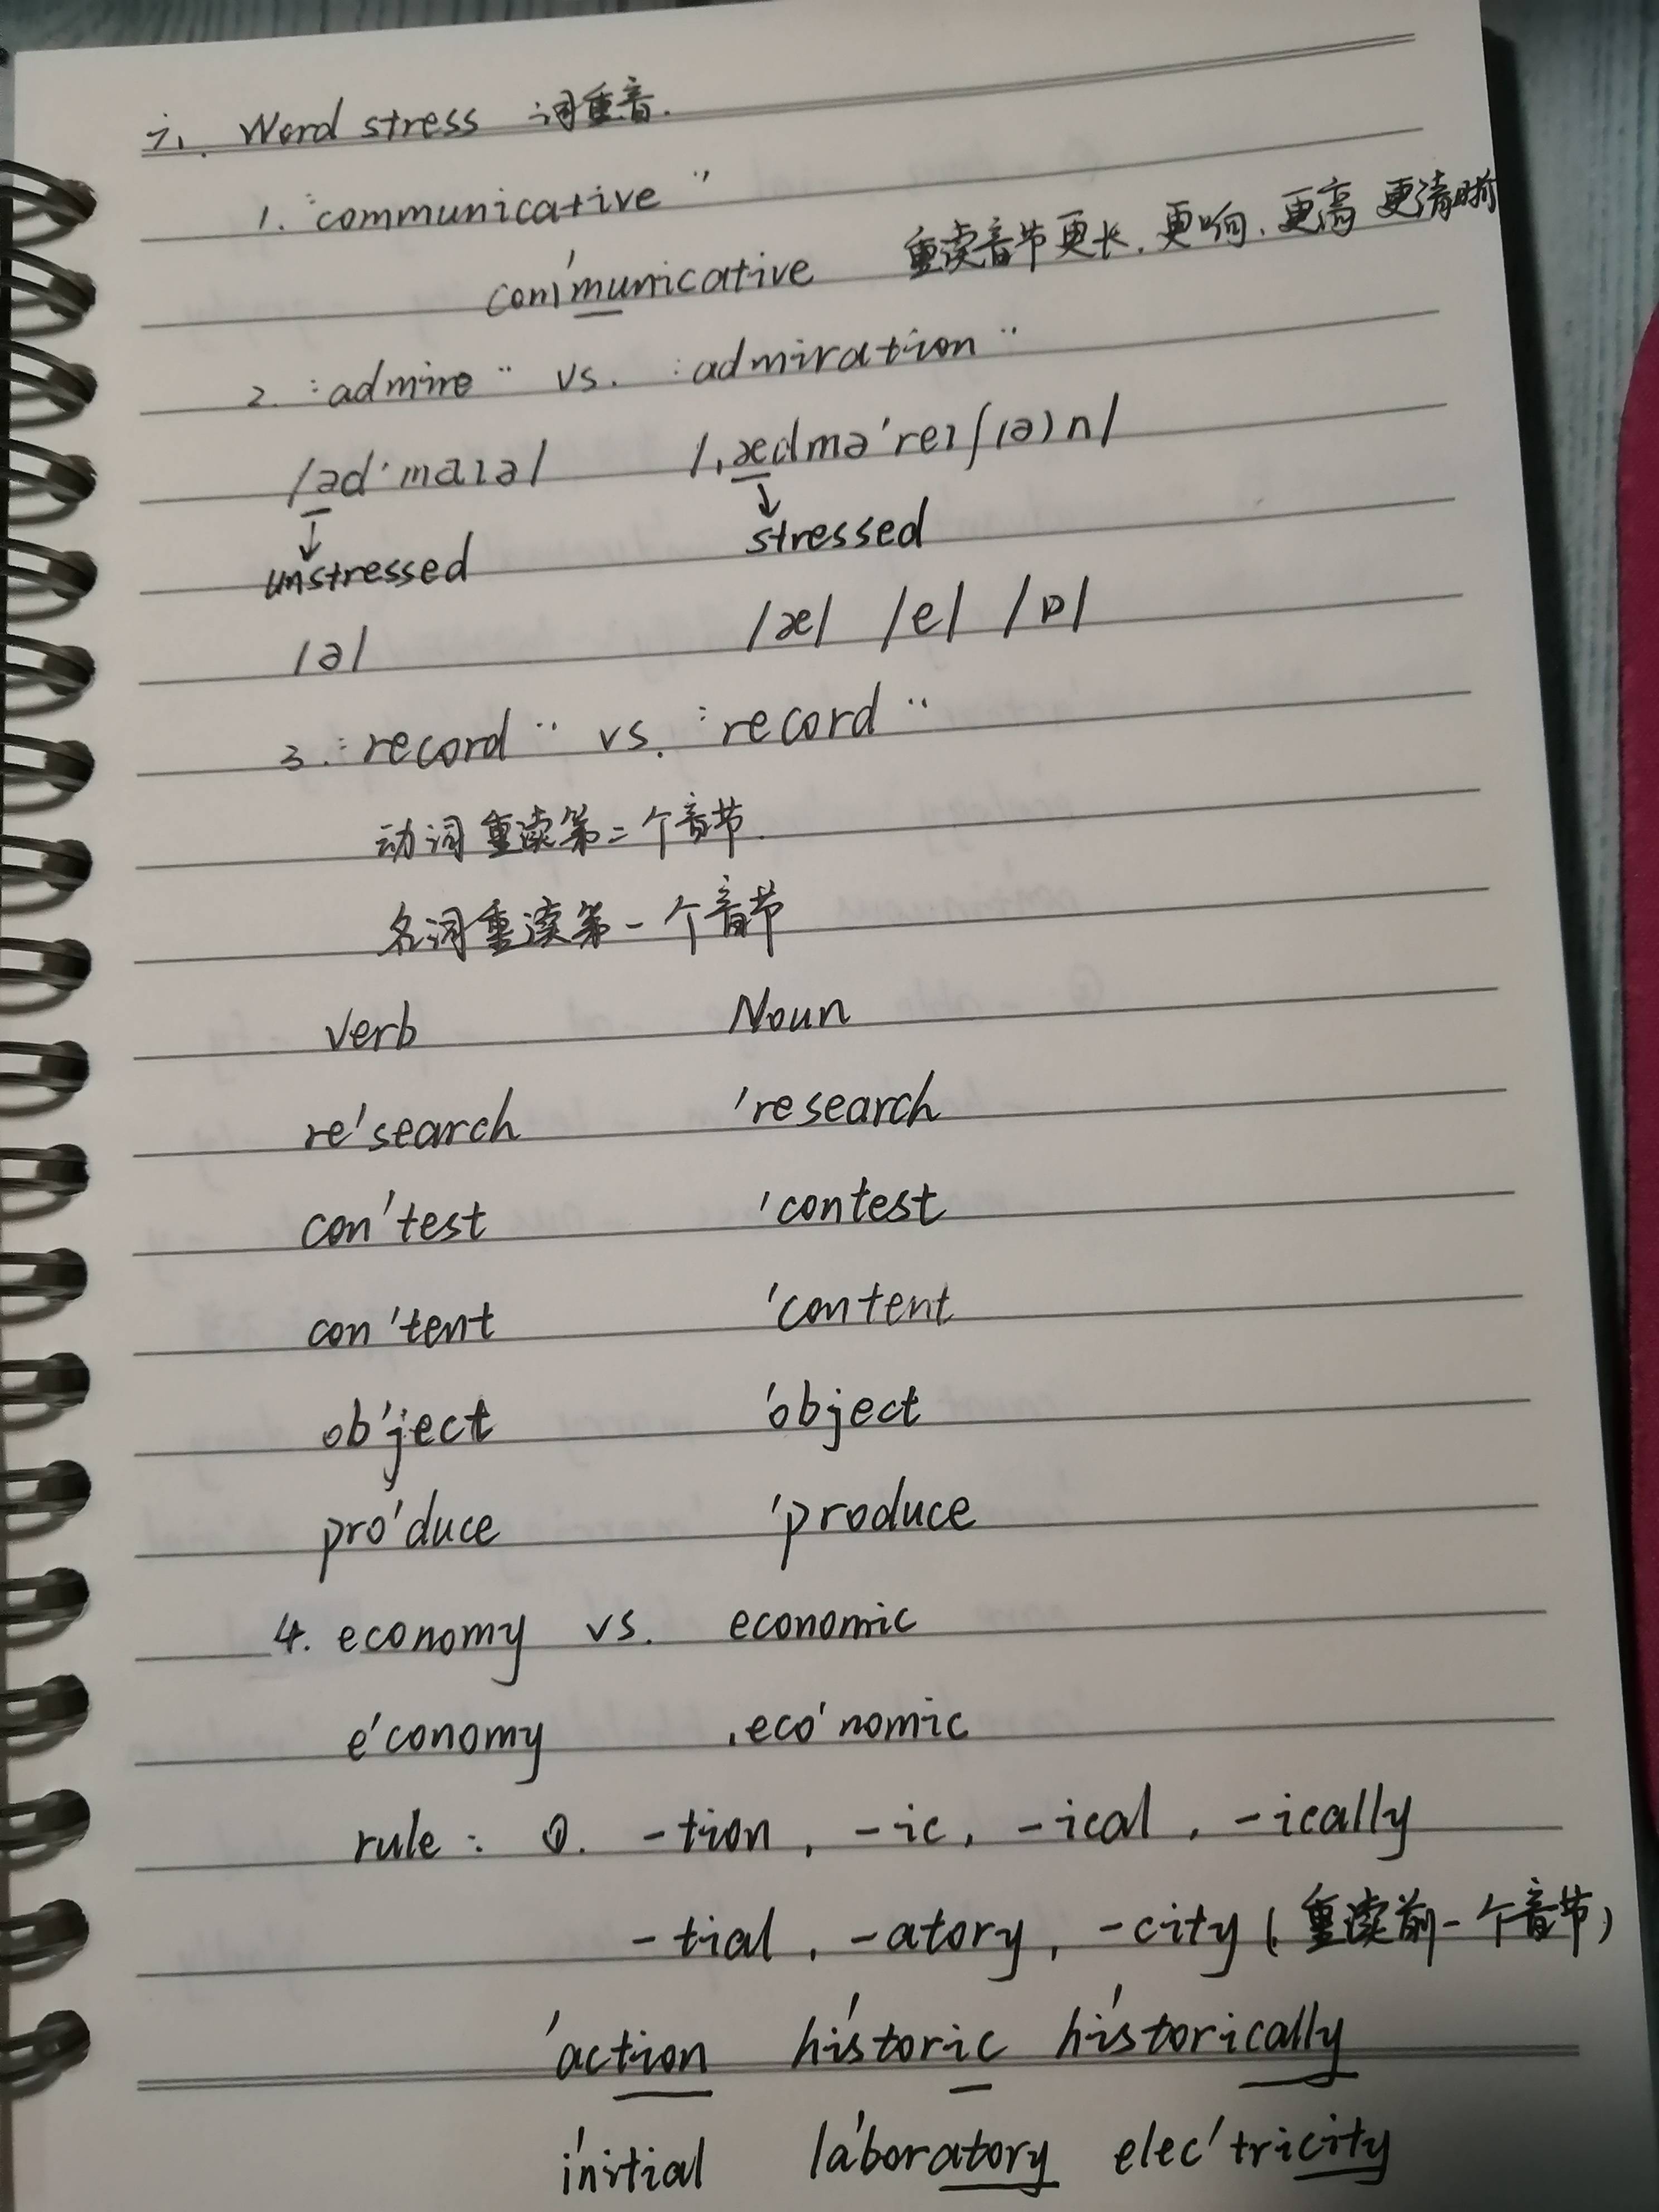 六. Word stress 词重音.
1. "communicative"
com'municative 重读音节更长.更响.更高 更清晰
2. "admire" vs. "admiration"
/əd'maɪə/ /ˌædmə'reɪʃ(ə)n/
↓ ↓
unstressed stressed
/ə/ /æ/ /e/ /ɒ/
3. "record" vs. "record"
动词重读第二个音节.
名词重读第一个音节
verb Noun
re'search 'research
con'test 'contest
con'tent 'content
ob'ject 'object
pro'duce 'produce
4. economy vs. economic
e'conomy ˌeco'nomic
rule: ①. -tion, -ic, -ical, -ically
-tial, -atory, -city (重读前一个音节)
'action hi'storic hi'storically
i'nitial la'boratory elec'tricity